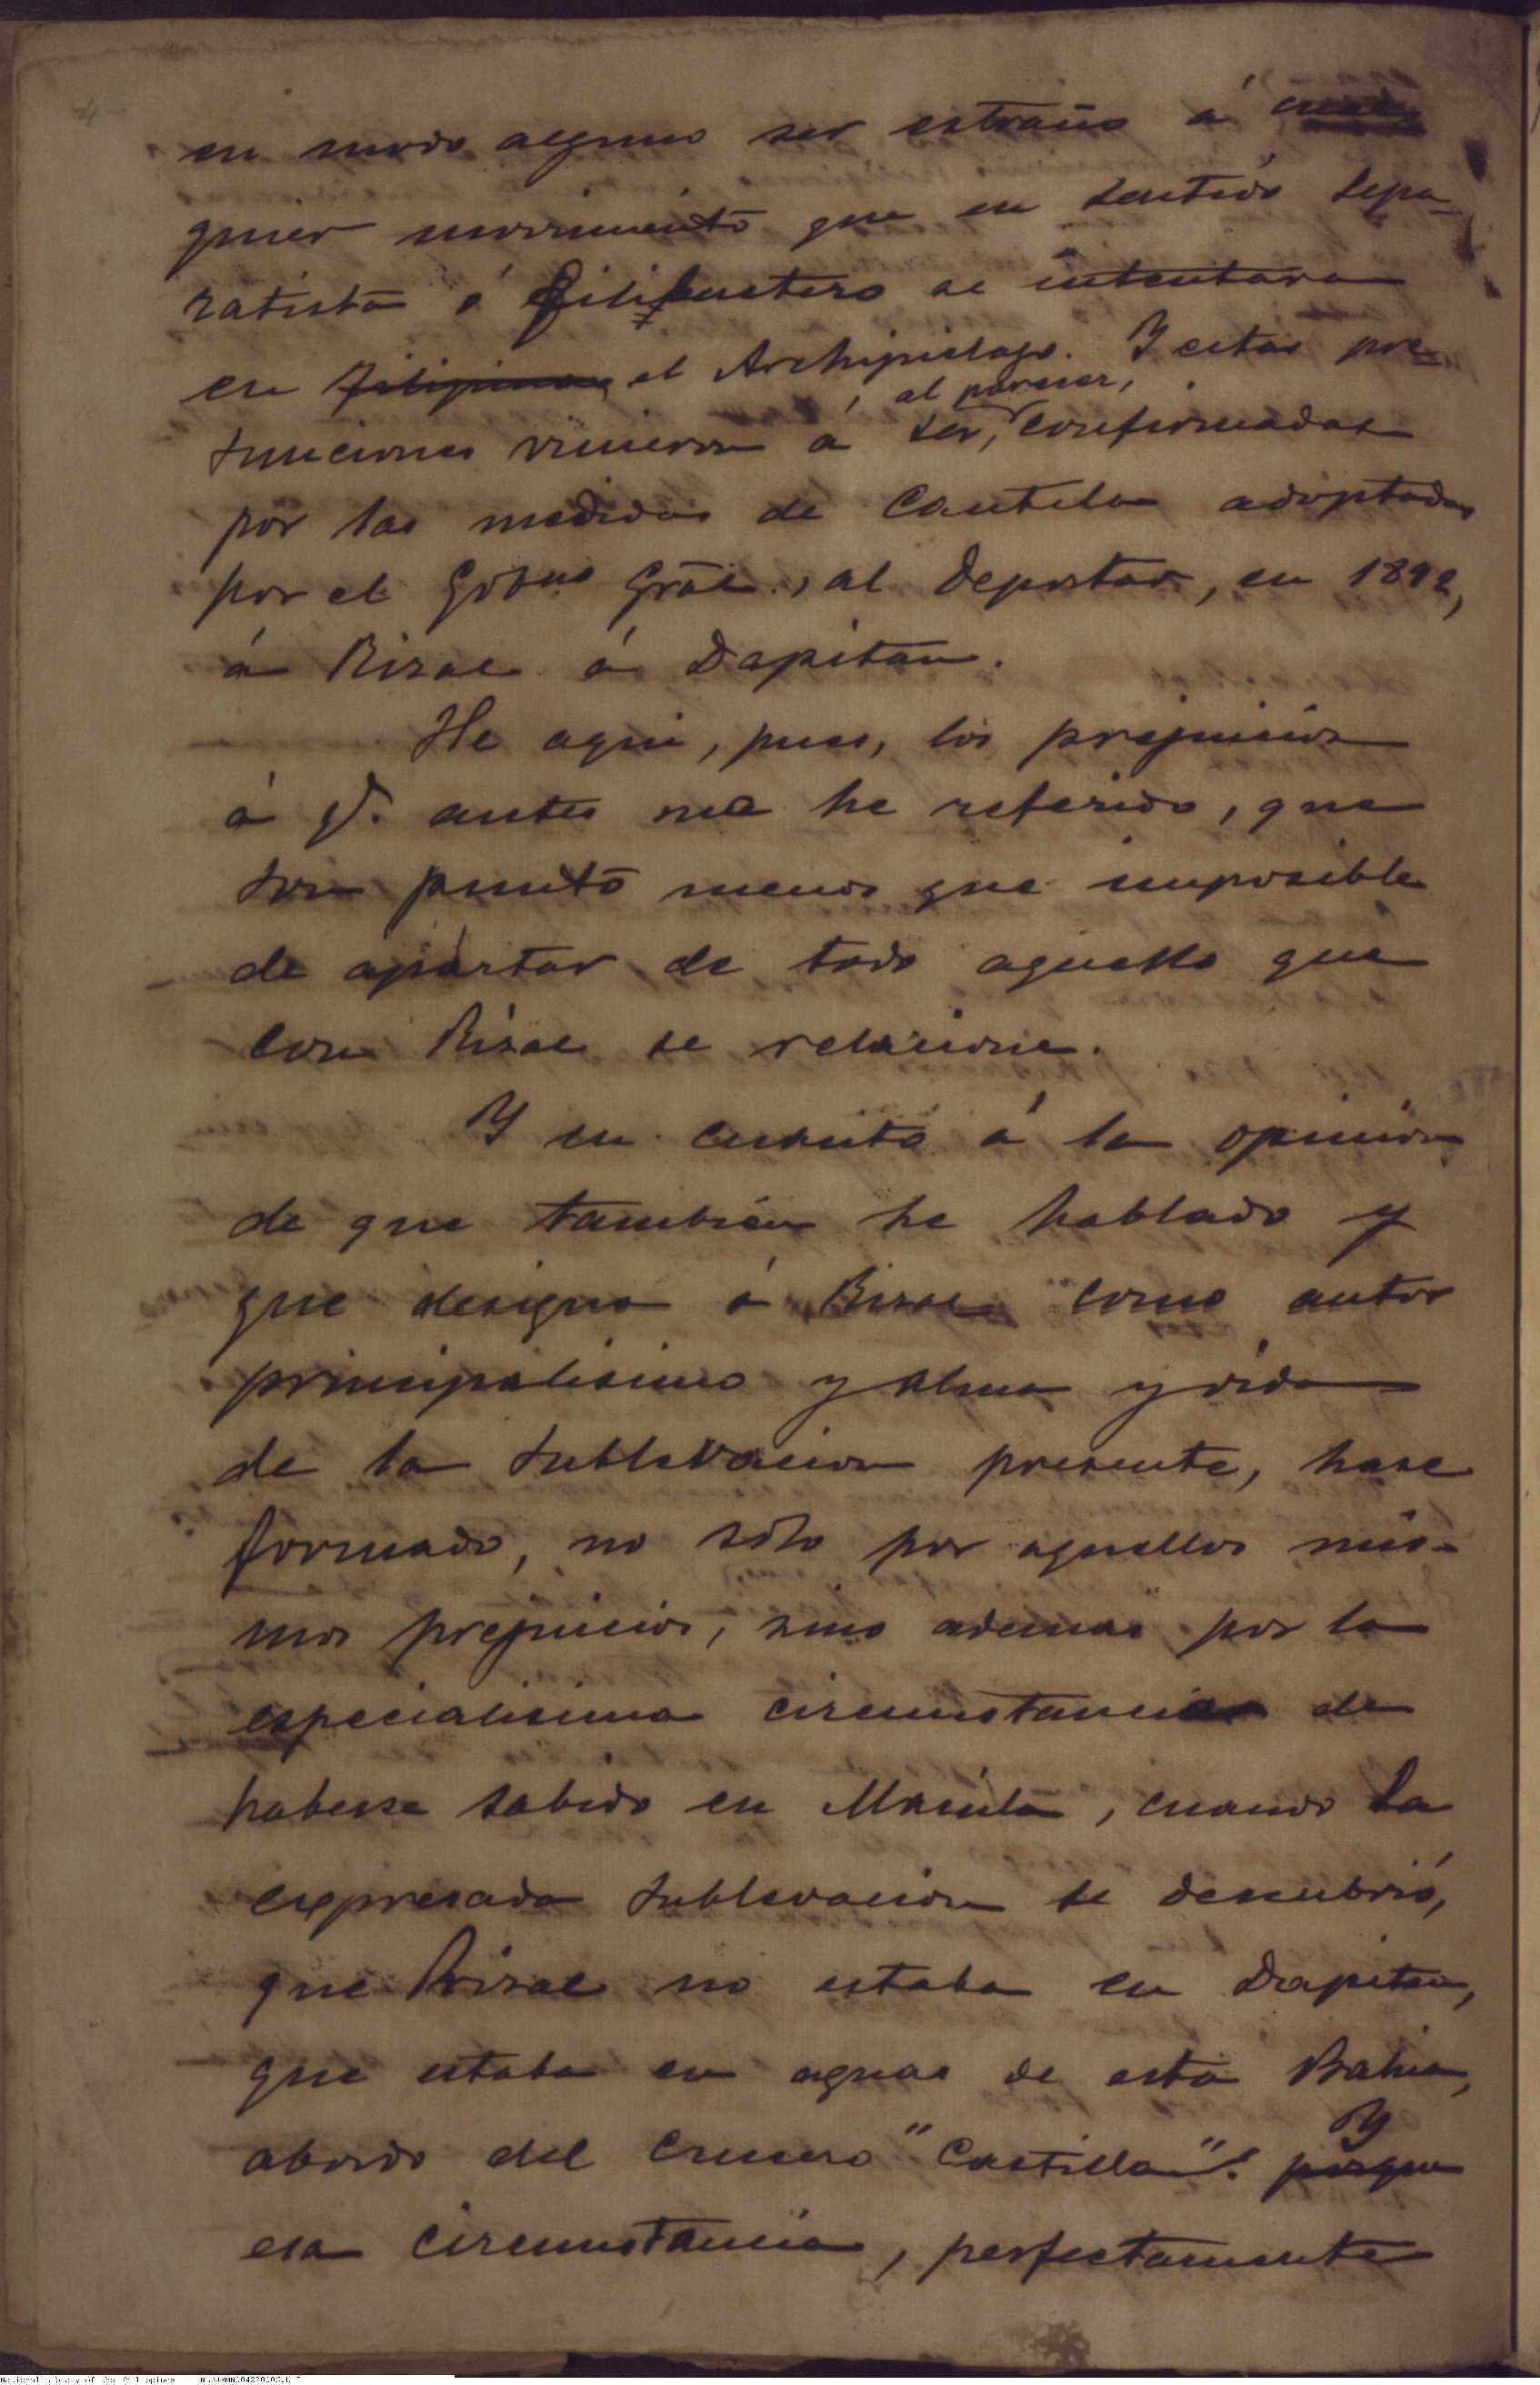 en modo alguno ser estraño á cual
quier movimiento que en sentido sepa-
ratista ó filibustero se intentara
en Filipinas el Archipielago. Y estas pre-
, al parecer,
sunciones vinieron á ser, confirmadas
por las medidas de cautela adoptadas
por el Gobno Gral., al deportar, en 1892,
á Rizal á Dapitan.
He aqui, pues, los prejuicios
á q. antes me he referido, que
son punto menos que imposible
de apartar de todo aquello que
con Rizal se relacione.
Y en cuanto á la opinión
de que también he hablado y
que designa á Rizal como autor
principalisimo y alma y vida
de la sublevacion presente, hase
formado, no sólo por aquellos mis-
mos prejuicios, sino ademas por la
especialisima circunstancia de
haberse sabido en Manila, cuando la
expresada sublevacion se descubrió,
que Rizal no estaba en Dapitan,
que estaba en aguas de esta Bahia,
abordo del crucero "Castilla". porque
Y
esa circunstancia, perfectamente
National Library of the Philippines